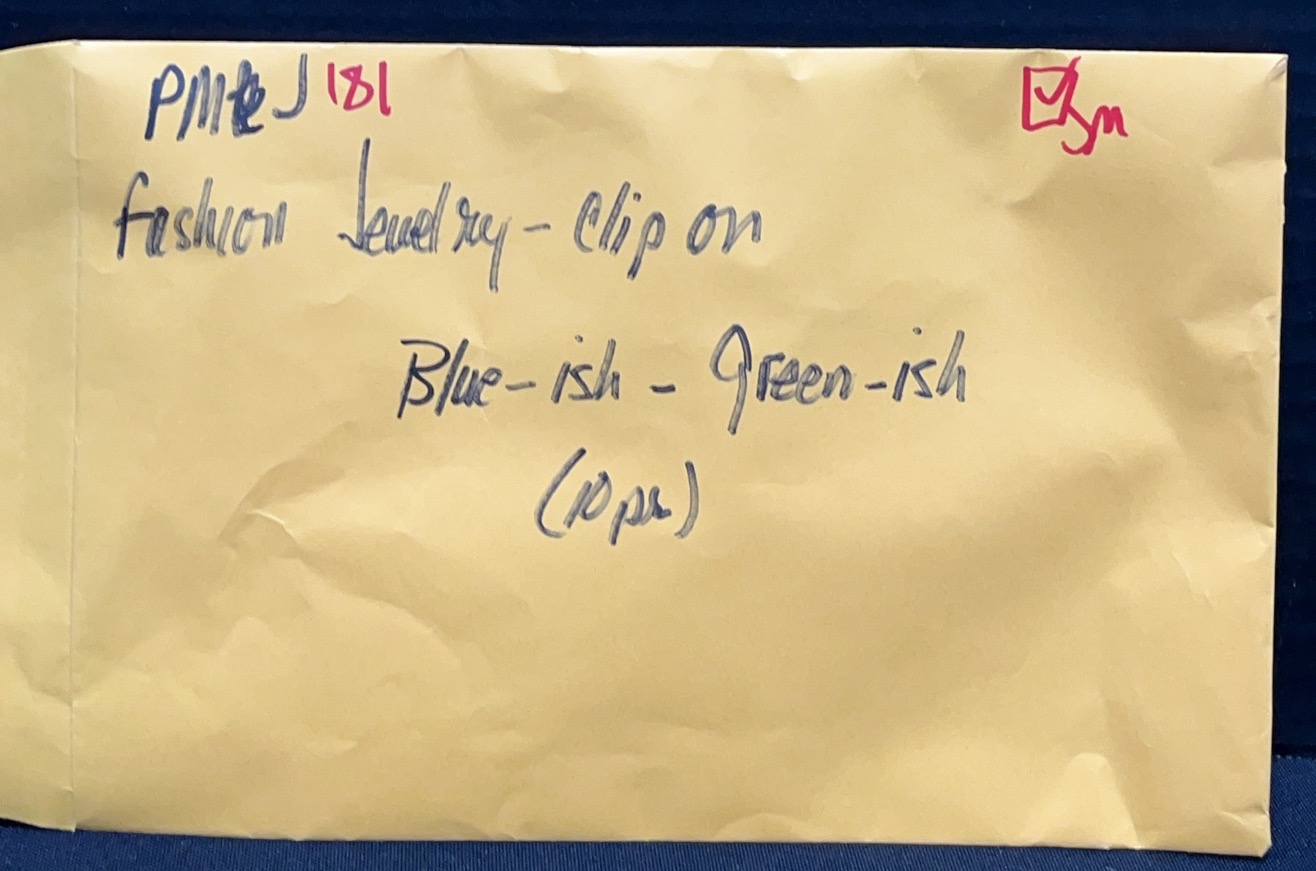 J 181
Fashion Jewelry - Clip on
Blue-ish - Green-ish
(10 pr)